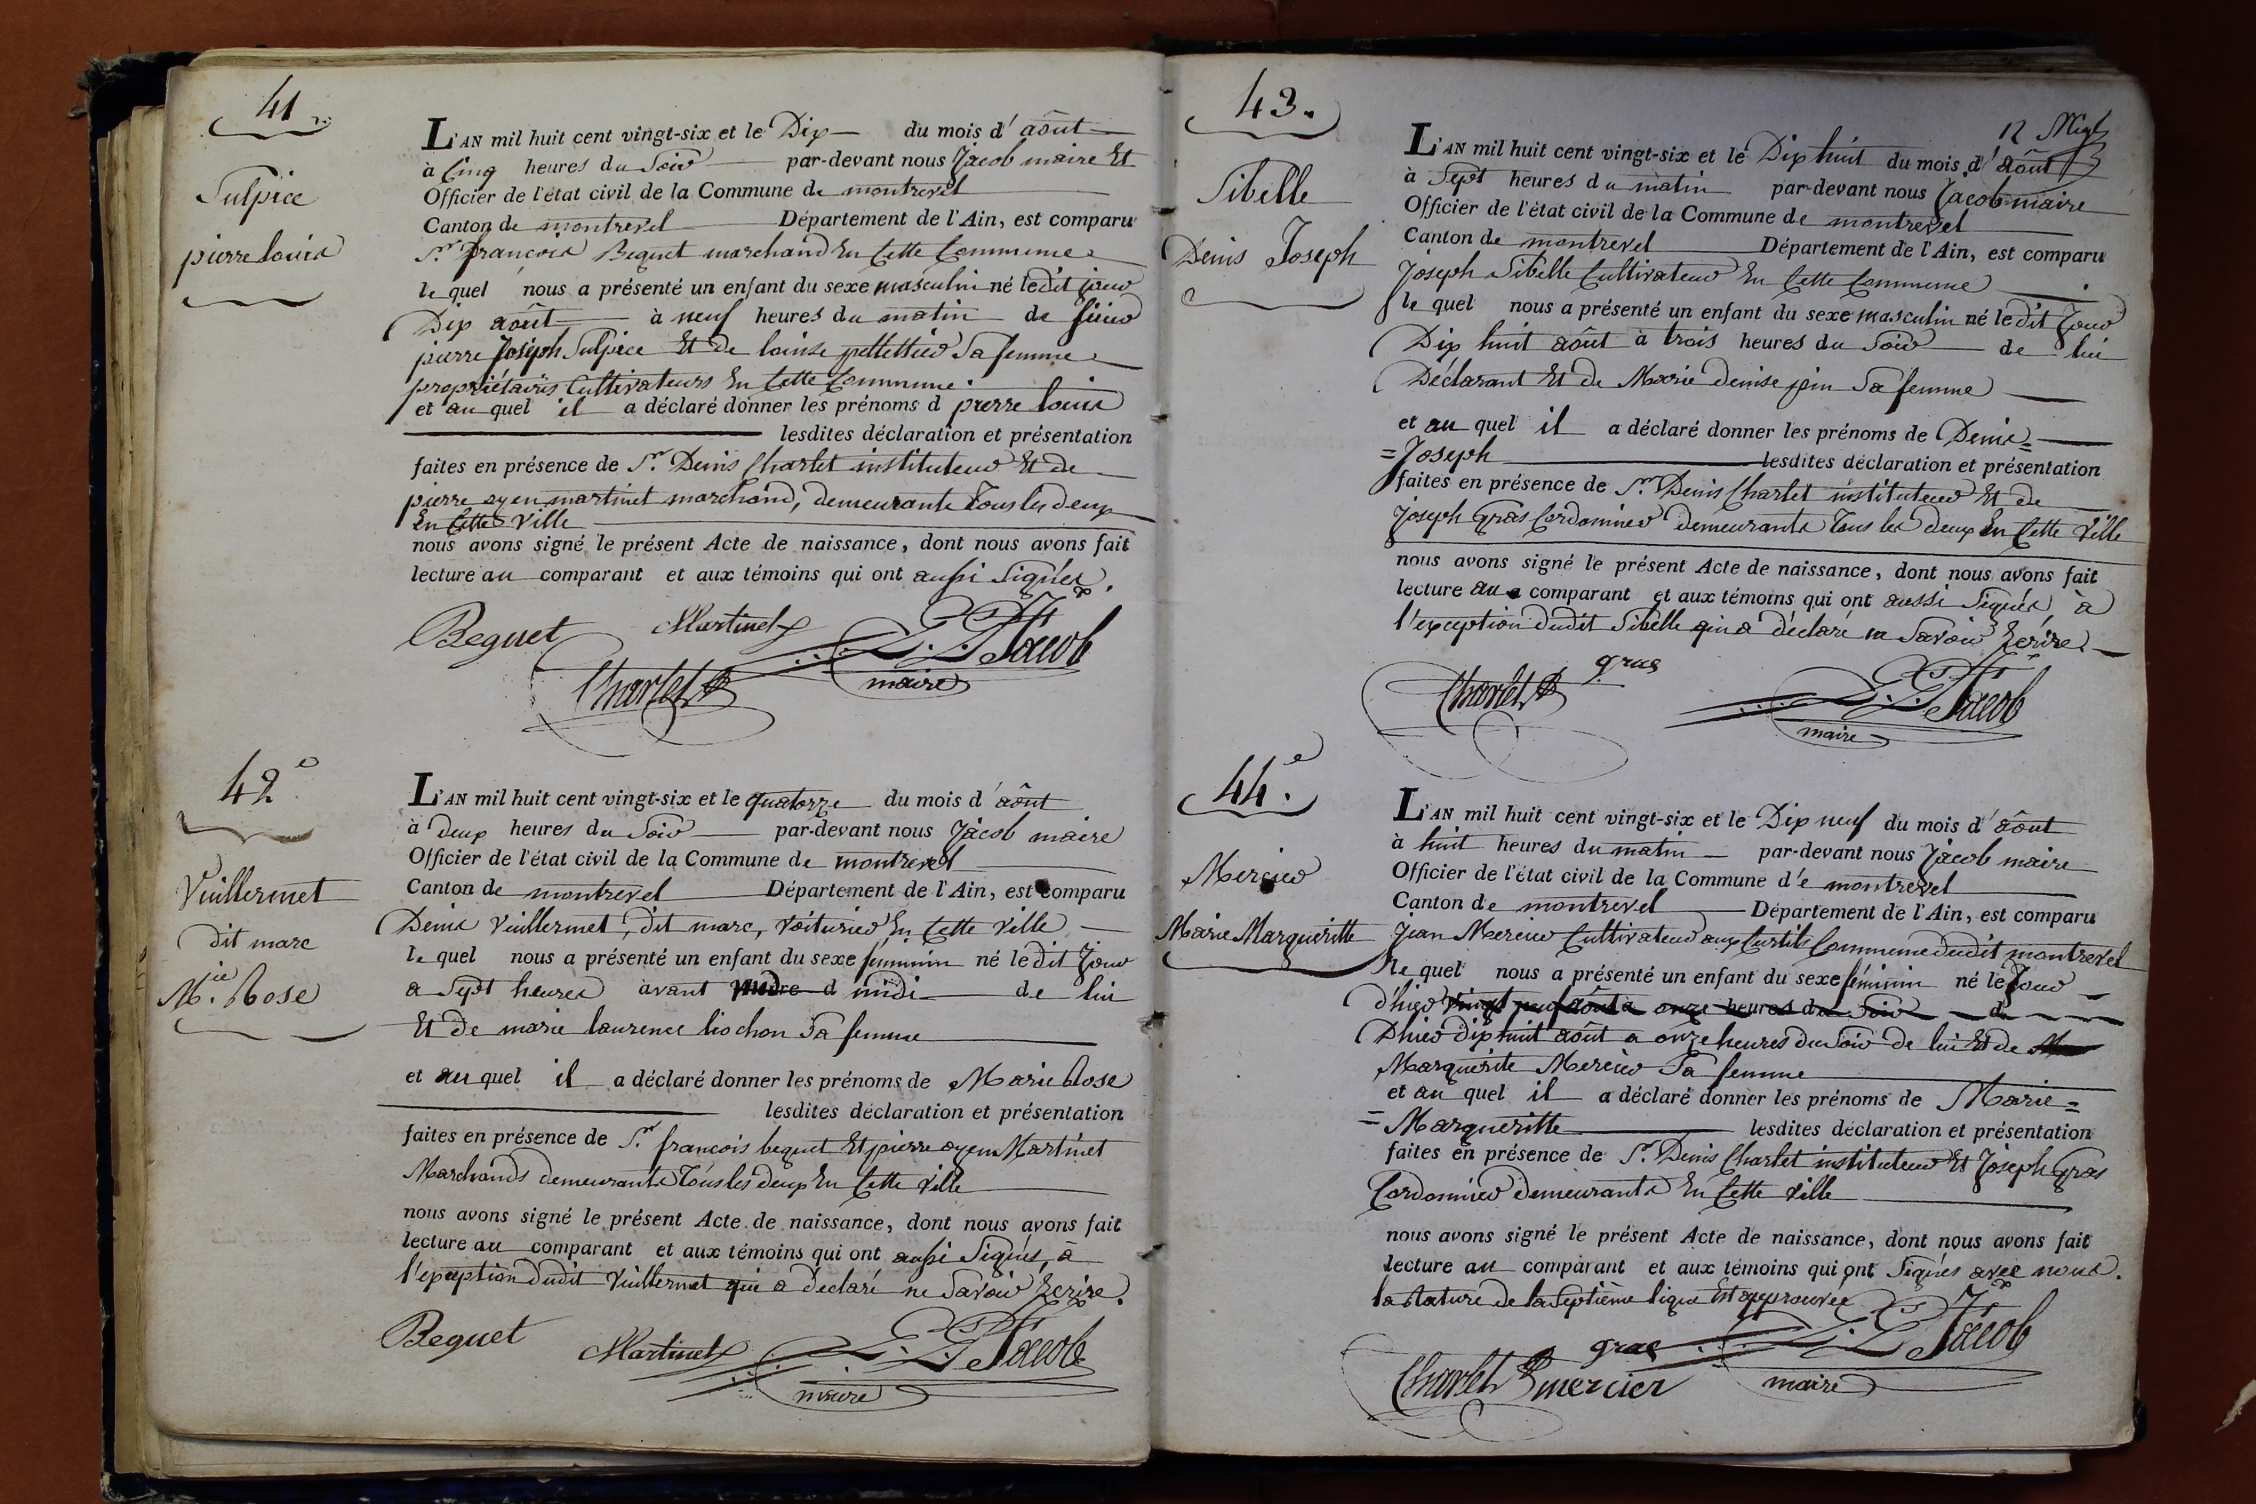 41
Sulpice
pierre louis
L'AN mil huit cent vingt-six et le Dix du mois d'août
à Cinq heures du Soir par-devant nous Jacob maire Et
Officier de l'état civil de la Commune de montrevel
Canton de montrevel Département de l'Ain, est comparu
Sr. françois Beguet marchand En Cette Commune
le quel nous a présenté un enfant du sexe masculin né ledit jour
Dix août à neuf heures du matin de sieur
pierre Joseph Sulpice Et de louise pellettier Sa femme
propriétaires Cultivateurs En Cette Commune
et au quel il a déclaré donner les prénoms d pierre louis
lesdites déclaration et présentation
faites en présence de Sr. Denis Charlet instituteur Et de
pierre ayen martinet marchand, demeurants Tous les deux
En Cette Ville
nous avons signé le présent Acte de naissance, dont nous avons fait
lecture au comparant et aux témoins qui ont aussi Signés.
Beguet Martinet Jacob
Charlet maire
42e
Vuillermet
dit marc
M.ie Rose
L'AN mil huit cent vingt-six et le quatorze du mois d'août
à deux heures du Soir par-devant nous Jacob maire
Officier de l'état civil de la Commune de montrevel
Canton de montrevel Département de l'Ain, est comparu
Denis Vuillermet, dit marc, Voiturier En Cette Ville
le quel nous a présenté un enfant du sexe féminin né ledit Jour
a Sept heures avant midi de lui
Et de marie laurence liochon Sa femme
et au quel il a déclaré donner les prénoms de Marie Rose
lesdites déclaration et présentation
faites en présence de Sr. françois beguet Et pierre ayen Martinet
Marchands demeurants Tous les deux En Cette Ville
nous avons signé le présent Acte de naissance, dont nous avons fait
lecture au comparant et aux témoins qui ont aussi Signés, à
l'exception dudit Vuillermet qui a déclaré ne Savoir Ecrire.
Beguet Martinet Jacob
maire
43.
Sibelle
Denis Joseph
L'AN mil huit cent vingt-six et le Dix huit du mois d'août
à Sept heures du matin par-devant nous Jacob maire
Officier de l'état civil de la Commune de montrevel
Canton de montrevel Département de l'Ain, est comparu
Joseph Sibelle Cultivateur En Cette Commune
le quel nous a présenté un enfant du sexe masculin né ledit Jour
Dix huit août à trois heures du Soir de lui
Déclarant Et de Marie denise Sa femme
et au quel il a déclaré donner les prénoms de Denis=
=Joseph lesdites déclaration et présentation
faites en présence de Sr. Denis Charlet instituteur Et de
Joseph Gras Cordonnier demeurants Tous les deux En Cette Ville
nous avons signé le présent Acte de naissance, dont nous avons fait
lecture au comparant et aux témoins qui ont aussi Signés à
l'exception dudit Sibelle qui a déclaré ne Savoir Ecrire
Charlet gras Jacob
maire
44e.
Mercier
Marie Margueritte
L'AN mil huit cent vingt-six et le Dix neuf du mois d'août
à huit heures du matin par-devant nous Jacob maire
Officier de l'état civil de la Commune d'e montrevel
Canton de montrevel Département de l'Ain, est comparu
Jean Mercier Cultivateur aux Curtils Commune dudit montrevel
le quel nous a présenté un enfant du sexe féminin né le Jour
d'hier onze heures du Soir d
Dhier dix huit août a onze heures du Soir de lui Et de
Marguerite Mercier Sa femme
et au quel il a déclaré donner les prénoms de Marie=
=Margueritte lesdites déclaration et présentation
faites en présence de Sr. Denis Charlet instituteur Et Joseph Gras
Cordonnier demeurants En Cette Ville
nous avons signé le présent Acte de naissance, dont nous avons fait
lecture au comparant et aux témoins qui ont Signés avec nous.
la Rature de la Septième ligne Est approuvée
gras Jacob
Charlet mercier maire